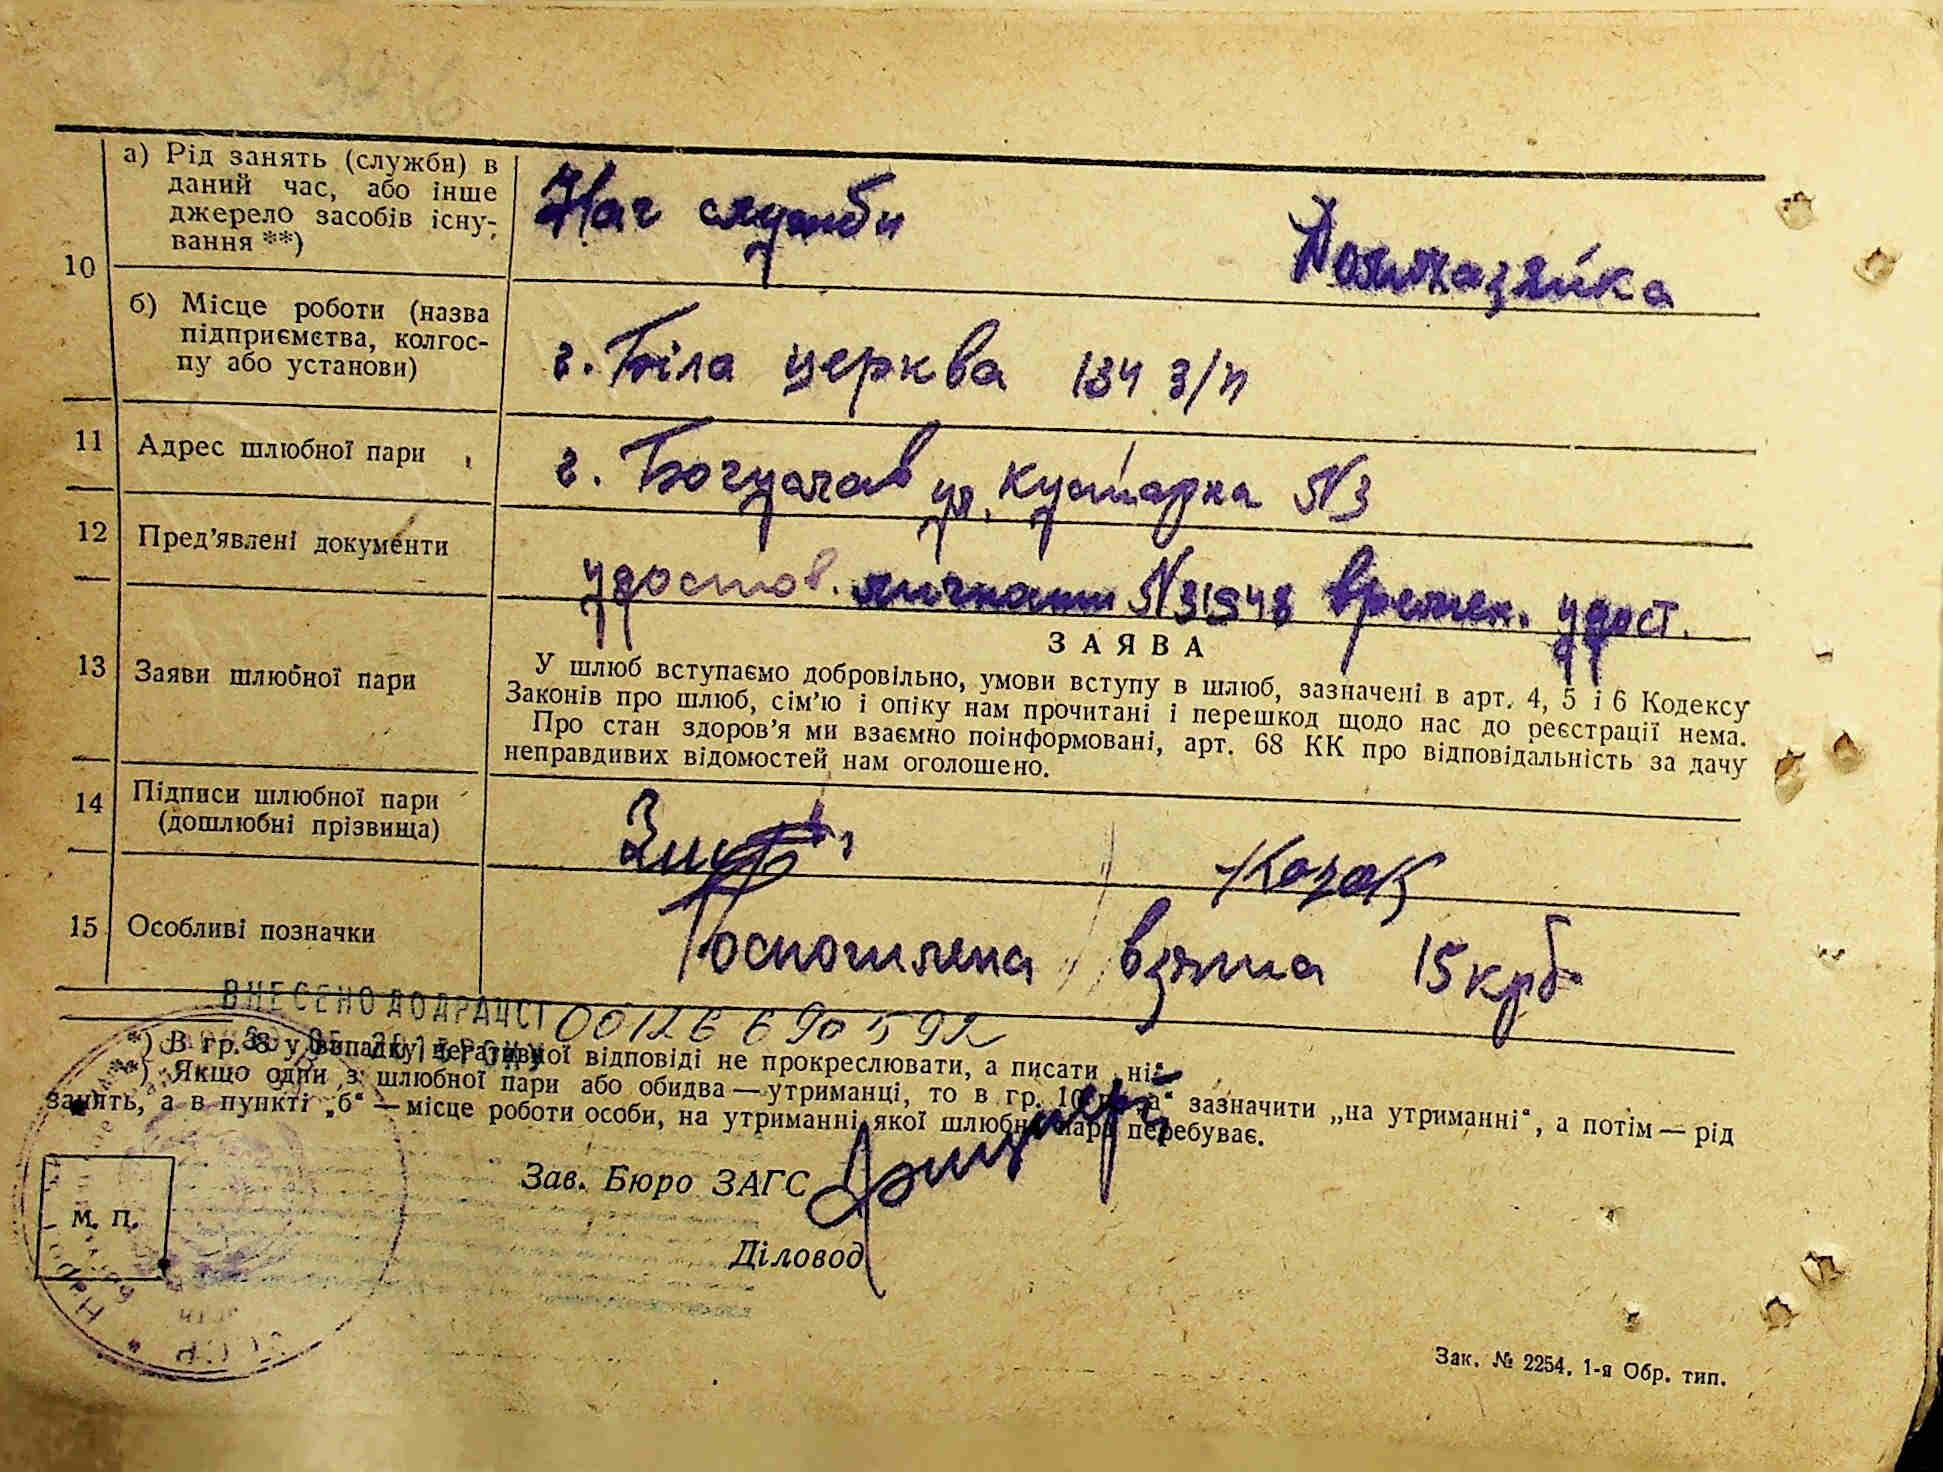 а) Рід занять (служби) в
даний час, або інше
джерело засобів існу-
вання **)
Нач служби
Домхазяйка
10
б) Місце роботи (назва
підприємства, колгос-
пу або установи)
г. Біла церква 134 З/П
11 Адрес шлюбної пари
г. Богуслав ул. Кустарна №3
12 Пред'явлені документи
удостов. личности №31548 времен. удост.
13 Заяви шлюбної пари
ЗАЯВА
У шлюб вступаємо добровільно, умови вступу в шлюб, зазначені в арт. 4, 5 і 6 Кодексу
Законів про шлюб, сім'ю і опіку нам прочитані і перешкод щодо нас до реєстрації нема.
Про стан здоров'я ми взаємно поінформовані, арт. 68 КК про відповідальність за дачу
неправдивих відомостей нам оголошено.
14 Підписи шлюбної пари
(дошлюбні прізвища)
Козак
15 Особливі позначки
Госпошлена взята 15 крб
ВНЕСЕНО ДО ДРАЦСГ 00126690592
*) В гр. 8 у випадку негативної відповіді не прокреслювати, а писати „ні“
**) Якщо один з шлюбної пари або обидва — утриманці, то в гр. 10 п. „а“ зазначити „на утриманні“, а потім — рід
занять, а в пункті „б“ — місце роботи особи, на утриманні якої шлюбна пара перебуває.
Зав. Бюро ЗАГС
М. П.
Діловод
Зак. № 2254. 1-я Обр. тип.